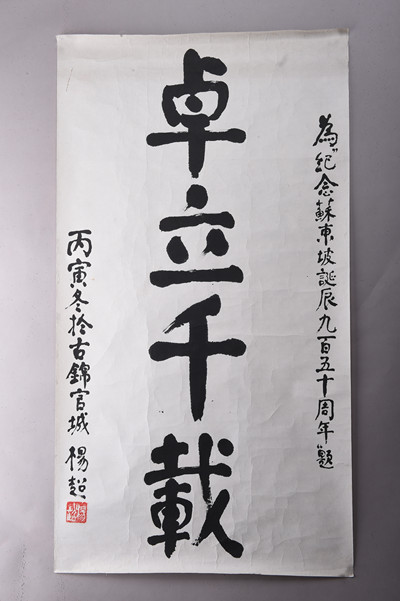 為"紀念蘇東坡誕辰九百五十周年題
卓立千載
丙寅冬於古錦官城 楊超